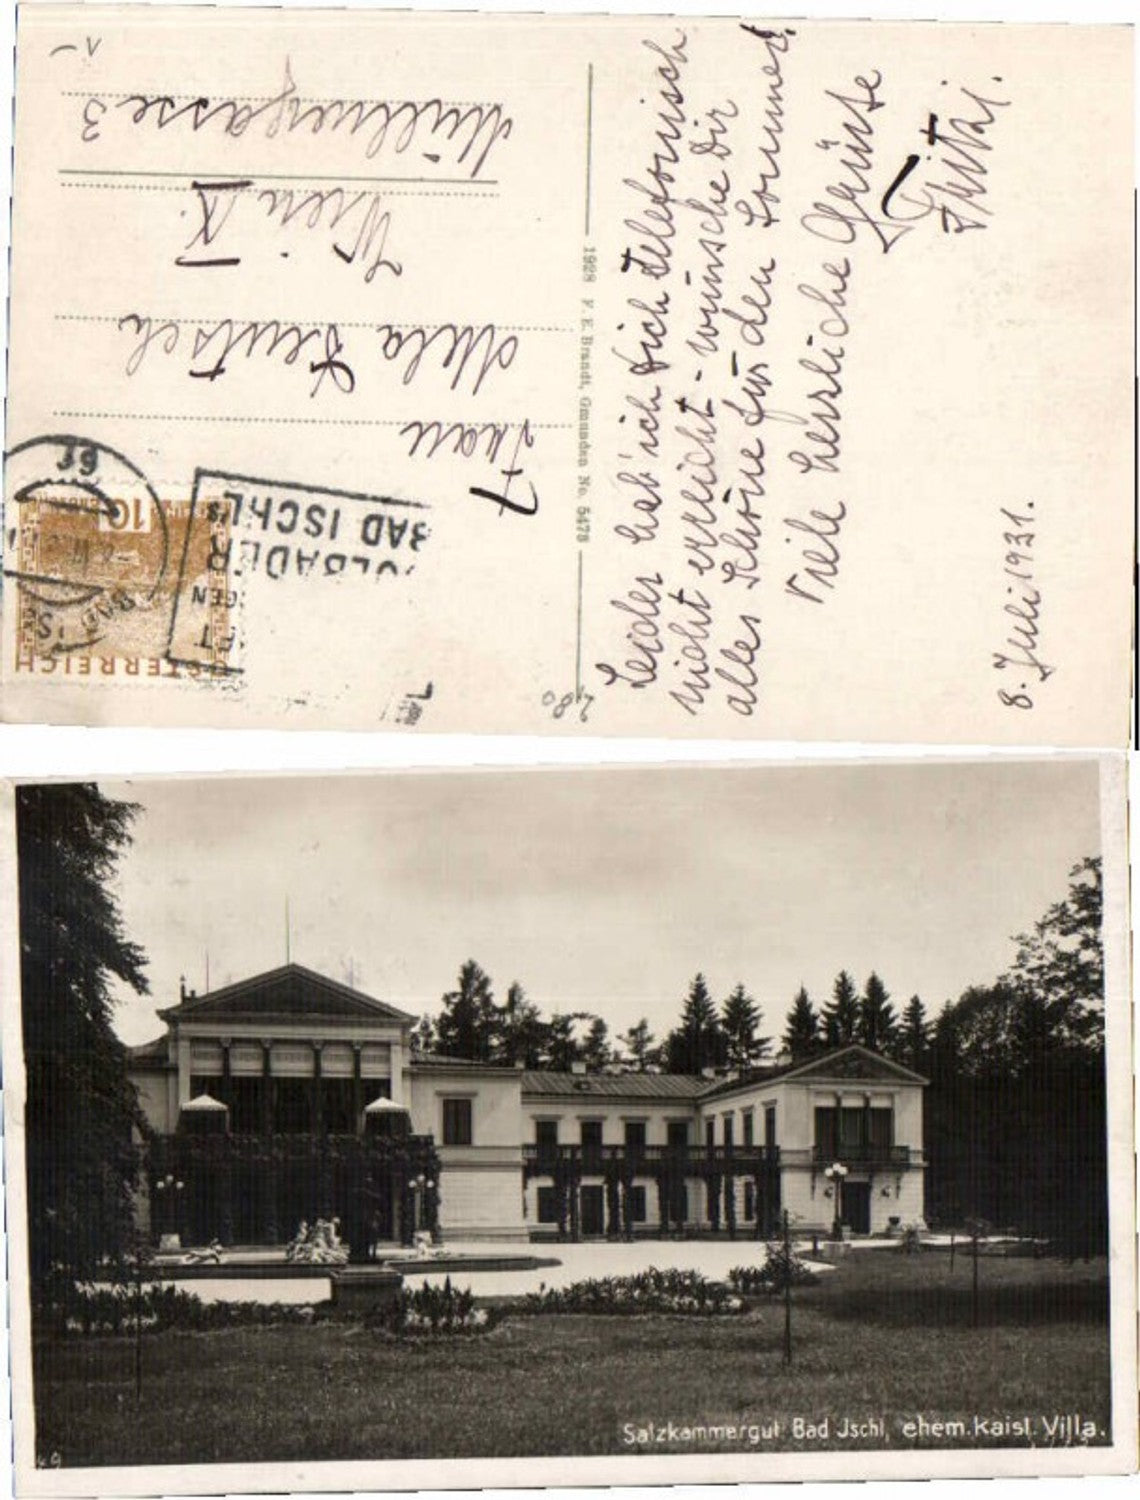 Leider hab' ich Dich telefonisch
nicht erreicht - wünsche Dir
alles Schöne für den Sommer,
Viele herzliche Grüße
Fritzi.
8. Juli 1931.
1928 F. E. Brandt, Gmunden No. 5478
280
Frau
Mela Deutsch
Wien IX.
Müllnergasse 3
BAD ISCHL
ÖSTERREICH
10
Salzkammergut Bad Jschl, ehem. kaisl. Villa.
49